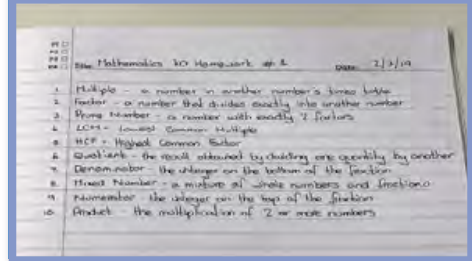 Title: Mathematics KO Homework # 1 Date: 2/2/19
1 Multiple - a number in another number's times table
2 Factor - a number that divides exactly into another number
3 Prime Number - a number with exactly 2 factors
4 LCM - Lowest Common Multiple
5 HCF - Highest Common Factor
6 Quotient - the result obtained by dividing one quantity by another
7 Denominator - the integer on the bottom of the fraction
8 Mixed Number - a mixture of whole numbers and fractions
9 Numerator - the integer on the top of the fraction
10 Product - the multiplication of 2 or more numbers